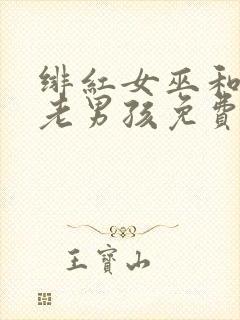 绯紅女巫和
老男孩免費
王寶山